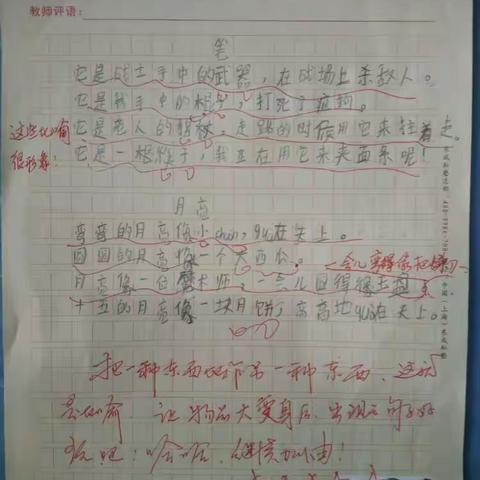 教师评语：
笔
它是战士手中的武器，在战场上杀敌人。
它是我手中的棍子，打死了疯狗。
它是老人的拐杖，走路的时候用它来拄着走。
它是一根筷子，我正在用它来夹面条呢！
这些比喻
很形象！
月亮
弯弯的月亮像小chuán，guà在天上。
圆圆的月亮像一个大西瓜。
月亮像一位魔术师，一会儿圆得像玉盘
十五的月亮像一块月饼，高高地guà在天上。
把一种东西比作另一种东西，这就
是比喻，让物品大变身后，出现的句子好
极啦！哈哈，继续加油！